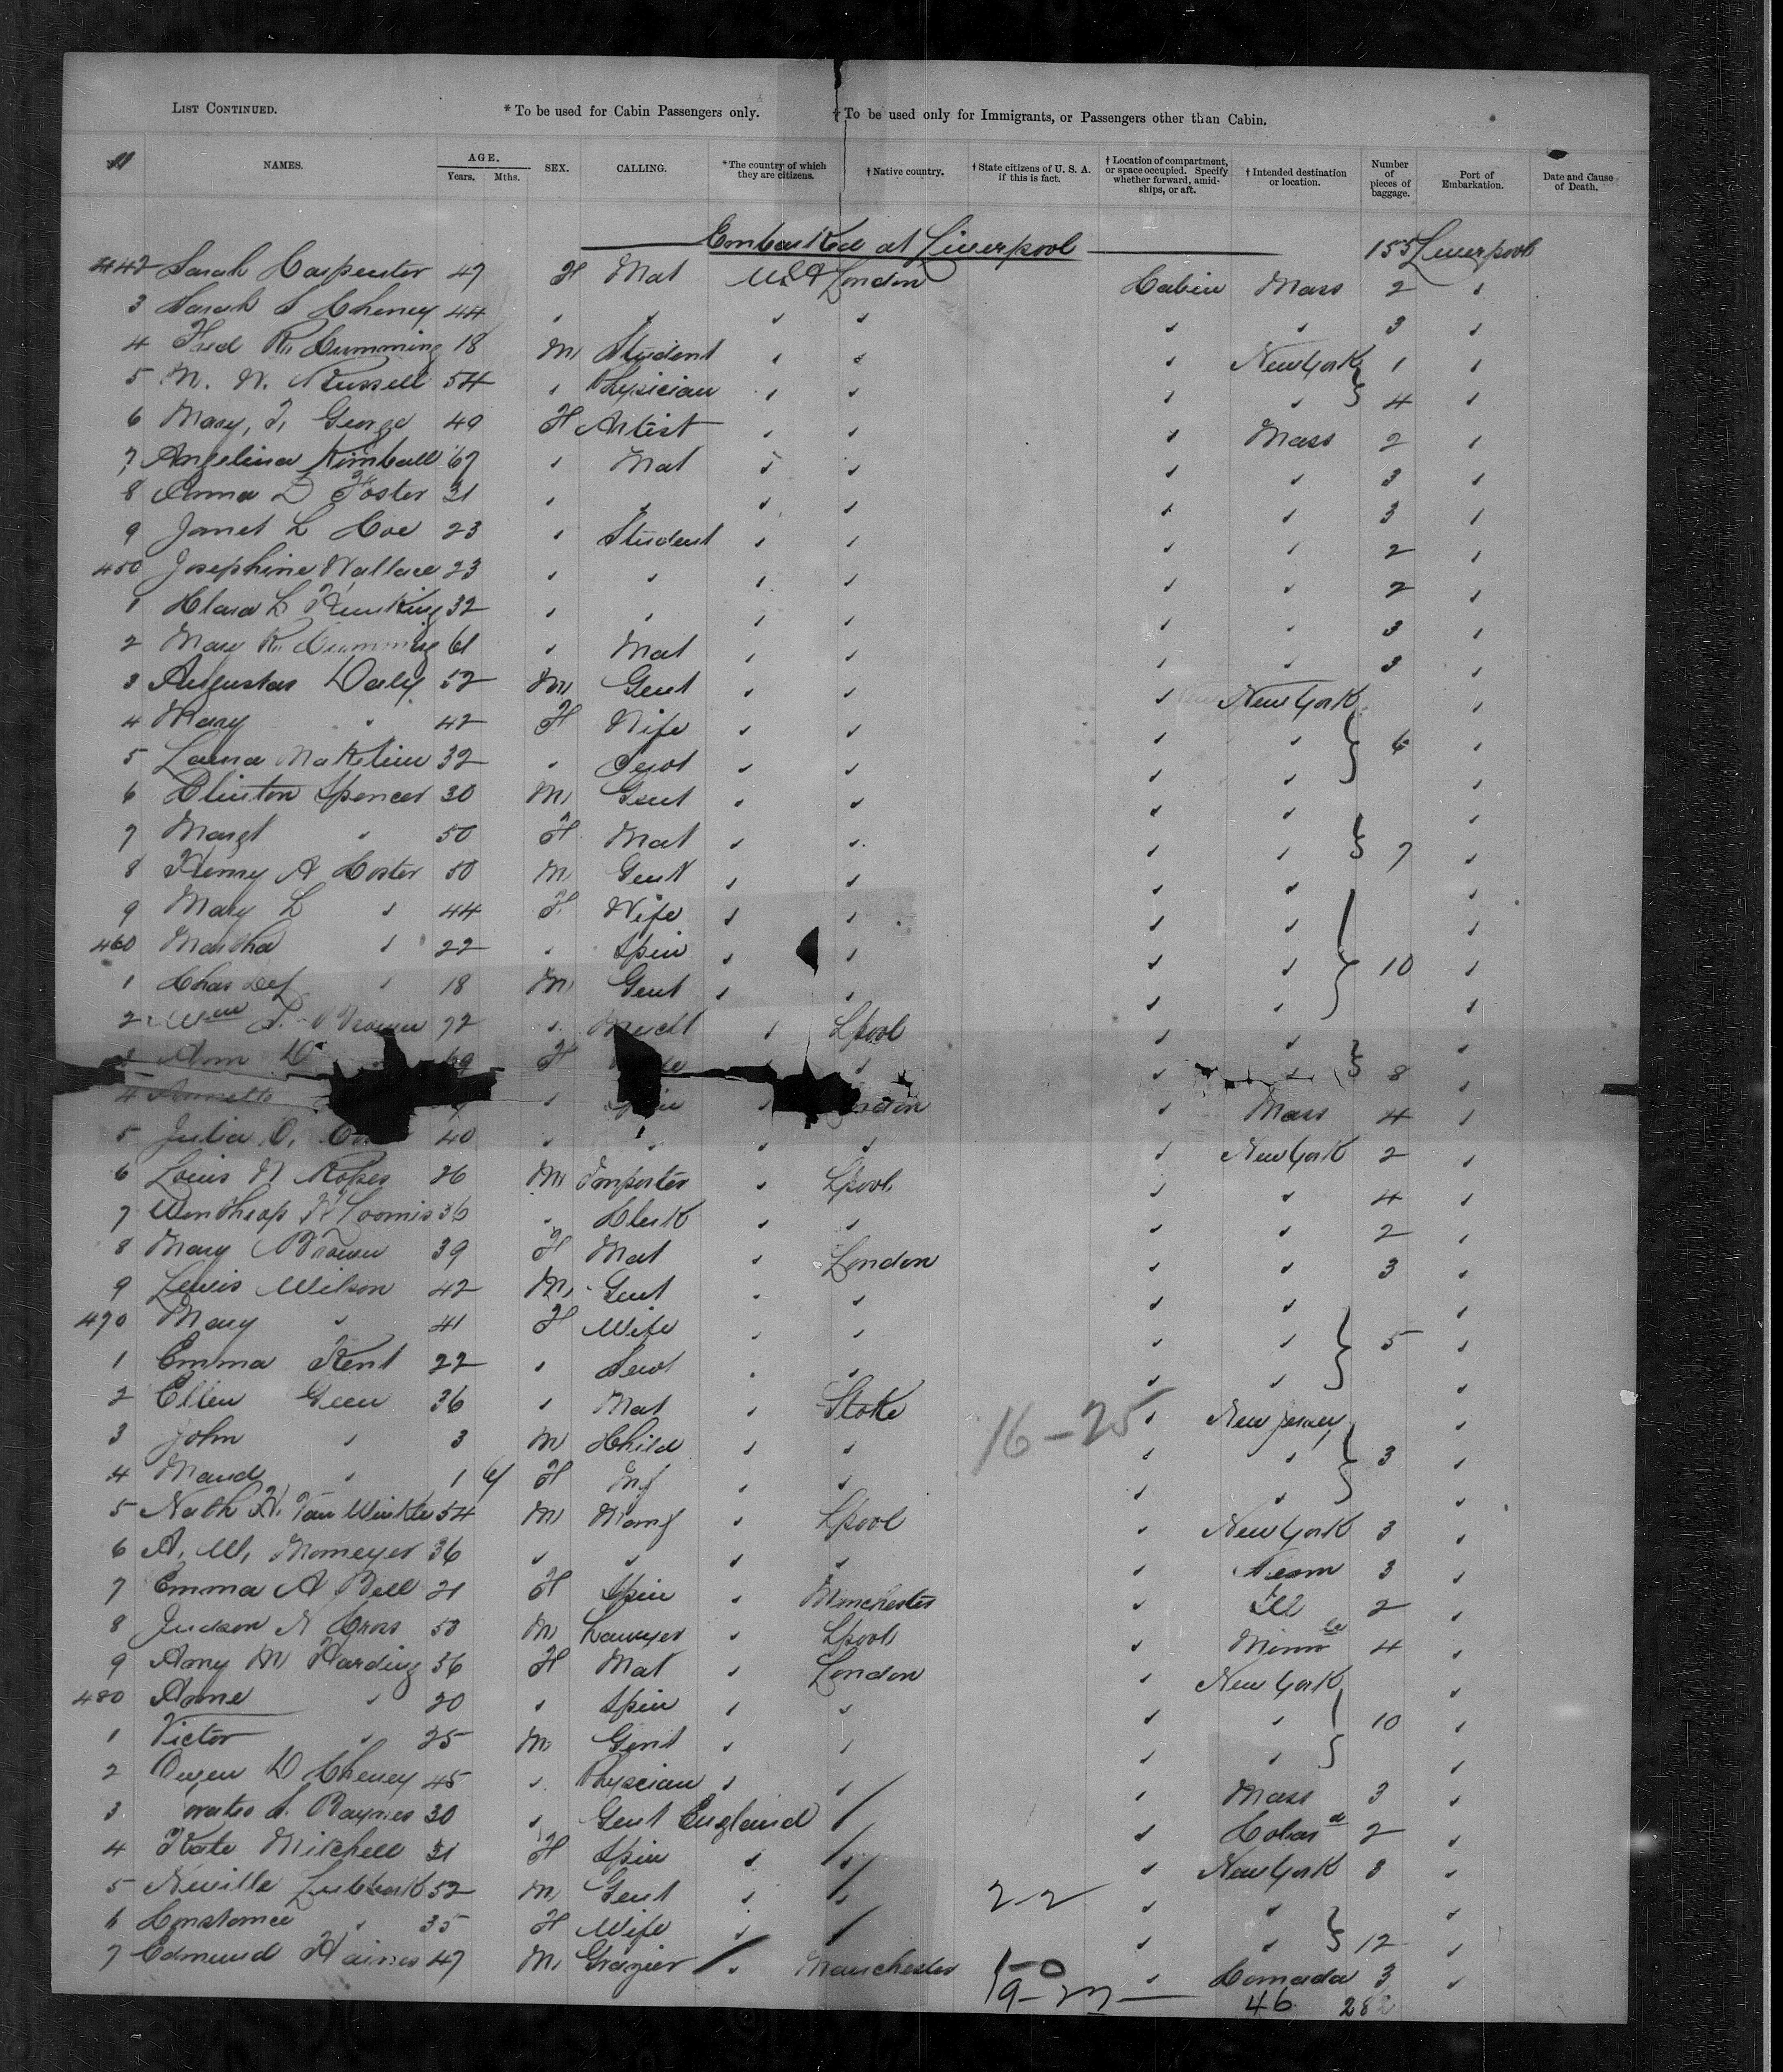 LIST CONTINUED. * To be used for Cabin Passengers only. † To be used only for Immigrants, or Passengers other than Cabin.
11 NAMES. AGE. Years. Mths. SEX. CALLING. *The country of which they are citizens. † Native country. † State citizens of U. S. A. if this is fact. † Location of compartment, or space occupied. Specify whether forward, amidships, or aft. † Intended destination or location. Number of pieces of baggage. Port of Embarkation. Date and Cause of Death.
Embarked at Liverpool 155 Liverpool
442 Sarah Carpenter 47 F Mat USA London Cabin Mass 2 "
3 Sarah S Cheney 44 " " " " " " 3 "
4 Fred R. Cumming 18 M Student " " " New York 1 "
5 N. W. Russell 54 " Physician " " " " 4 "
6 Mary, T, George 49 F Artist " " " Mass 2 "
7 Angelina Kimball 67 " Mat " " " " 3 "
8 Anna D Foster 31 " " " " " " 3 "
9 Janet L Coe 23 " Student " " " " 2 "
450 Josephine Wallace 23 " " " " " " 2 "
1 Clara L 32 " " " " " " 3 "
2 Mary R. Cumming 61 " Mat " " " " 3 "
3 Augustas Daly 52 M Gent " " " New York "
4 Mary " 42 F Wife " " " " 6 "
5 32 " Servt " " " " "
6 Clinton Spencer 30 M Gent " " " " "
7 Margt " 50 F Mat " " " " 7 "
8 Henry A Coster 50 M Gent " " " " "
9 Mary L " 44 F Wife " " " " "
460 Martha " 22 " Spin " " " " 10 "
1 Chas " 18 M Gent " " " " "
2 Wm L. Brown 72 " Mercht " Lpool " " "
3 Ann D 69 F " " " 8 "
4 Annette " " Mass 4 "
5 Julia O. 40 " " " " " New York 2 "
6 Louis N Ropes 26 M Importer " Lpool " " 4 "
7 Winthrop Loomis 36 " Clerk " " " " 2 "
8 Mary Brown 39 F Mat " London " " 3 "
9 Lewis Wilson 42 M Gent " " " " "
470 Mary " 41 F Wife " " " " 5 "
1 Emma Kent 22 " Servt " " " " "
2 Ellen Geen 36 " Mat " Stoke 16-25 " New Jersey "
3 John " 3 M Child " " " " 3 "
4 Maud " 1 F Inf " " " " "
5 Nath H. Van Winkle 54 M Manf " Lpool " New York 3 "
6 A. W. Momeyer 36 " " " " " 3 "
7 Emma A Bell 21 F Spin " Manchester " Ill 2 "
8 Judson N Cross 50 M Lawyer " Lpool " Minn 4 "
9 Amy M Harding 36 F Mat " London " New York "
480 Anne " 20 " Spin " " " " 10 "
1 Victor " 25 M Gent " " " " "
2 Owen D Cheney 45 " Physcian " " " Mass 3 "
3 S. Raynes 30 " Gent England " " 2 "
4 Kate Mitchell 31 F Spin " " " New York 3 "
5 Neville Lubbock 52 M Gent " " 22 " " "
6 Constance " 35 F Wife " " " 12 "
7 Edmund Haines 47 M Grazier " Manchester " Canada 3 "
46 282